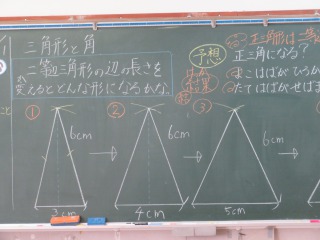 三角形と角
二等辺三角形の辺の長さを
変えるとどんな形になるかな。
予想
正三角形は二等
正三角形になる?
よこはばがひろが
たてはばがせばま
結果
① ② ③
6cm 6cm 6cm
3cm 4cm 5cm